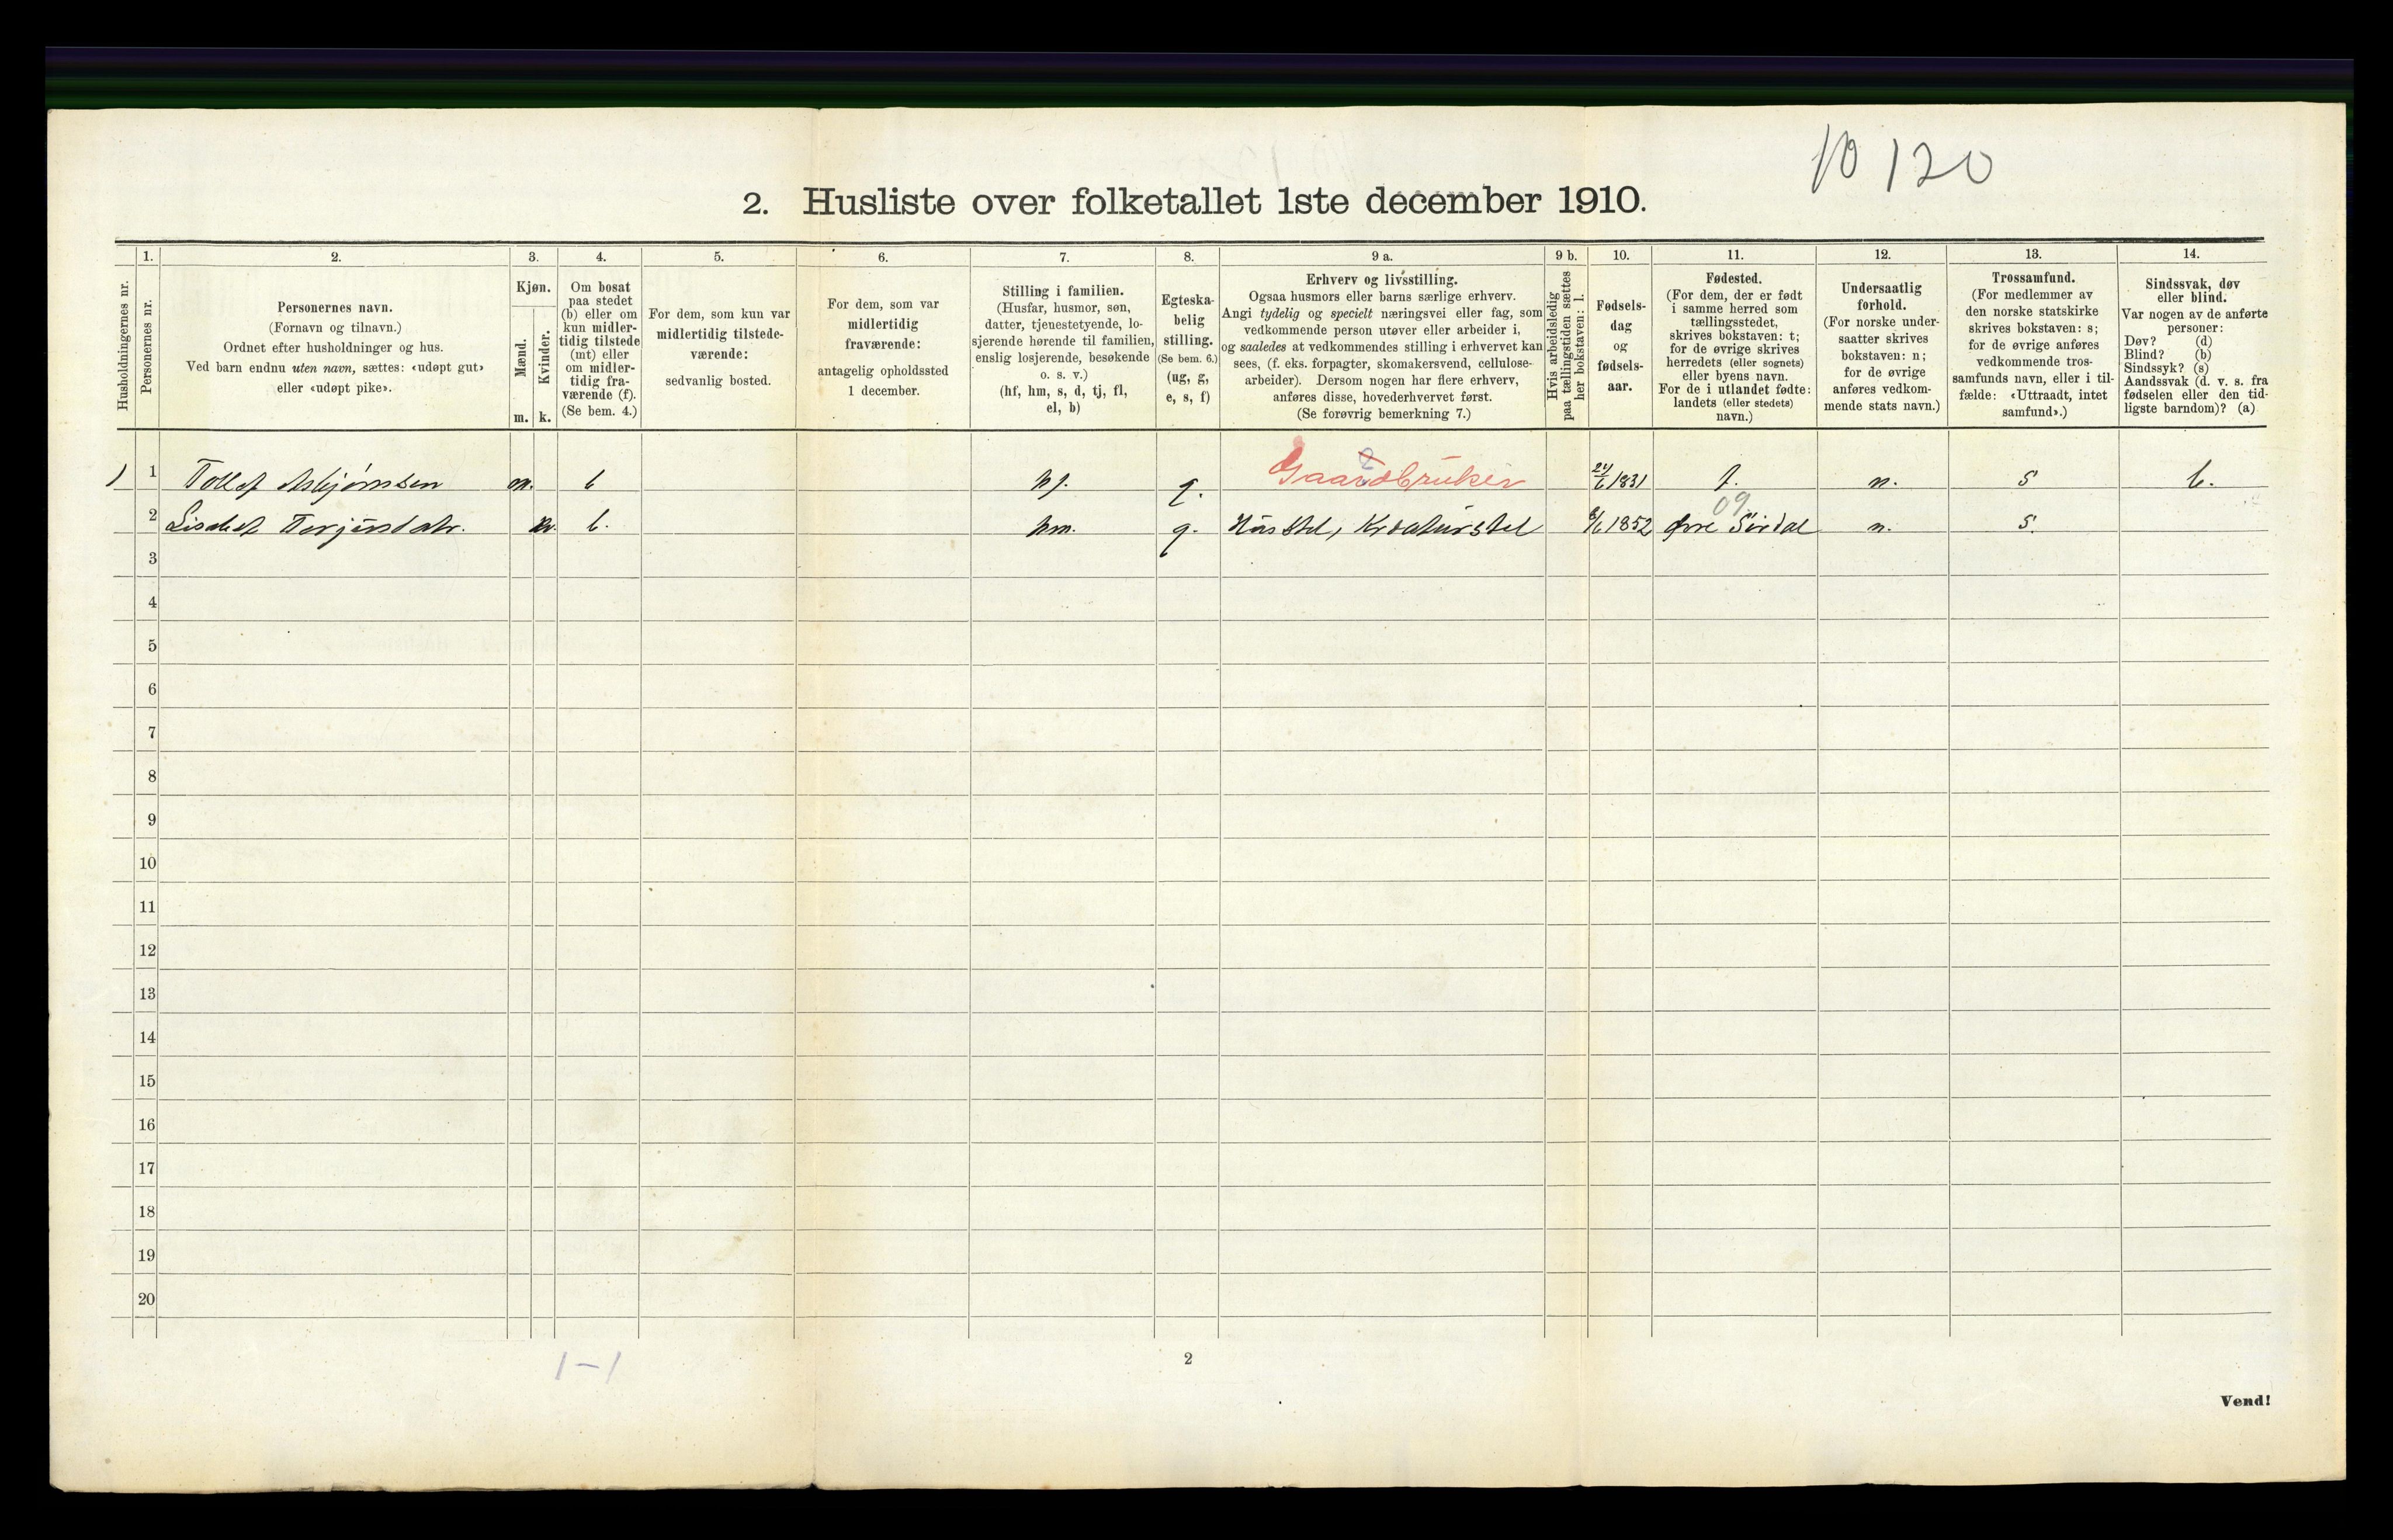 10 120
2. Husliste over folketallet 1ste december 1910.
1. 2. 3. 4. 5. 6. 7. 8. 9 a. 9 b. 10. 11. 12. 13. 14.
Husholdningernes nr.
Personernes nr.
Personernes navn.
(Fornavn og tilnavn.)
Ordnet efter husholdninger og hus.
Ved barn endnu uten navn, sættes: «udøpt gut»
eller «udøpt pike».
Kjøn.
Mænd.
Kvinder.
m. k.
Om bosat
paa stedet
(b) eller om
kun midler-
tidig tilstede
(mt) eller
om midler-
tidig fra-
værende (f).
(Se bem. 4.)
For dem, som kun var
midlertidig tilstede-
værende:
sedvanlig bosted.
For dem, som var
midlertidig
fraværende:
antagelig opholdssted
1 december.
Stilling i familien.
(Husfar, husmor, søn,
datter, tjenestetyende, lo-
sjerende hørende til familien,
enslig losjerende, besøkende
o. s. v.)
(hf, hm, s, d, tj, fl,
el, b)
Egteska-
belig
stilling.
(Se bem. 6.)
(ug, g,
e, s, f)
Erhverv og livsstilling.
Ogsaa husmors eller barns særlige erhverv.
Angi tydelig og specielt næringsvei eller fag, som
vedkommende person utøver eller arbeider i,
og saaledes at vedkommendes stilling i erhvervet kan
sees, (f. eks. forpagter, skomakersvend, cellulose-
arbeider). Dersom nogen har flere erhverv,
anføres disse, hovederhvervet først.
(Se forøvrig bemerkning 7.)
Hvis arbeidsledig
paa tællingstiden sættes
her bokstaven: l.
Fødsels-
dag
og
fødsels-
aar.
Fødested.
(For dem, der er født
i samme herred som
tællingsstedet,
skrives bokstaven: t;
for de øvrige skrives
herredets (eller sognets)
eller byens navn.
For de i utlandet fødte:
landets (eller stedets)
navn.)
Undersaatlig
forhold.
(For norske under-
saatter skrives
bokstaven: n;
for de øvrige
anføres vedkom-
mende stats navn.)
Trossamfund.
(For medlemmer av
den norske statskirke
skrives bokstaven: s;
for de øvrige anføres
vedkommende tros-
samfunds navn, eller i til-
fælde: «Uttraadt, intet
samfund».)
Sindssvak, døv
eller blind.
Var nogen av de anførte
personer:
Døv? (d)
Blind? (b)
Sindssyk? (s)
Aandssvak (d. v. s. fra
fødselen eller den tid-
ligste barndom)? (a)
1 Tollef Asbjørnsen m. b hf. g. Gaardbruker 1831 t. n. s b.
2 Lisabet Terjusdatr. k. b. hm. g. Husstel, Kreaturstel 1852 Øvre Sirdal n. s.
09
3
4
5
6
7
8
9
10
11
12
13
14
15
16
17
18
19
20
1-1
2
Vend!